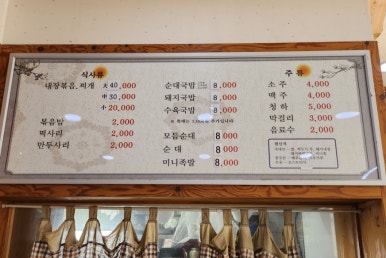 식사류
내장볶음, 찌개 大 40,000
中 30,000
小 20,000
볶음밥 2,000
떡사리 2,000
만두사리 2,000
순대국밥 8,000
돼지국밥 8,000
수육국밥 8,000
모듬순대 8,000
순 대 8,000
미니족발 8,000
주 류
소 주 4,000
맥 주 4,000
청 하 5,000
막걸리 3,000
음료수 2,000
원산지